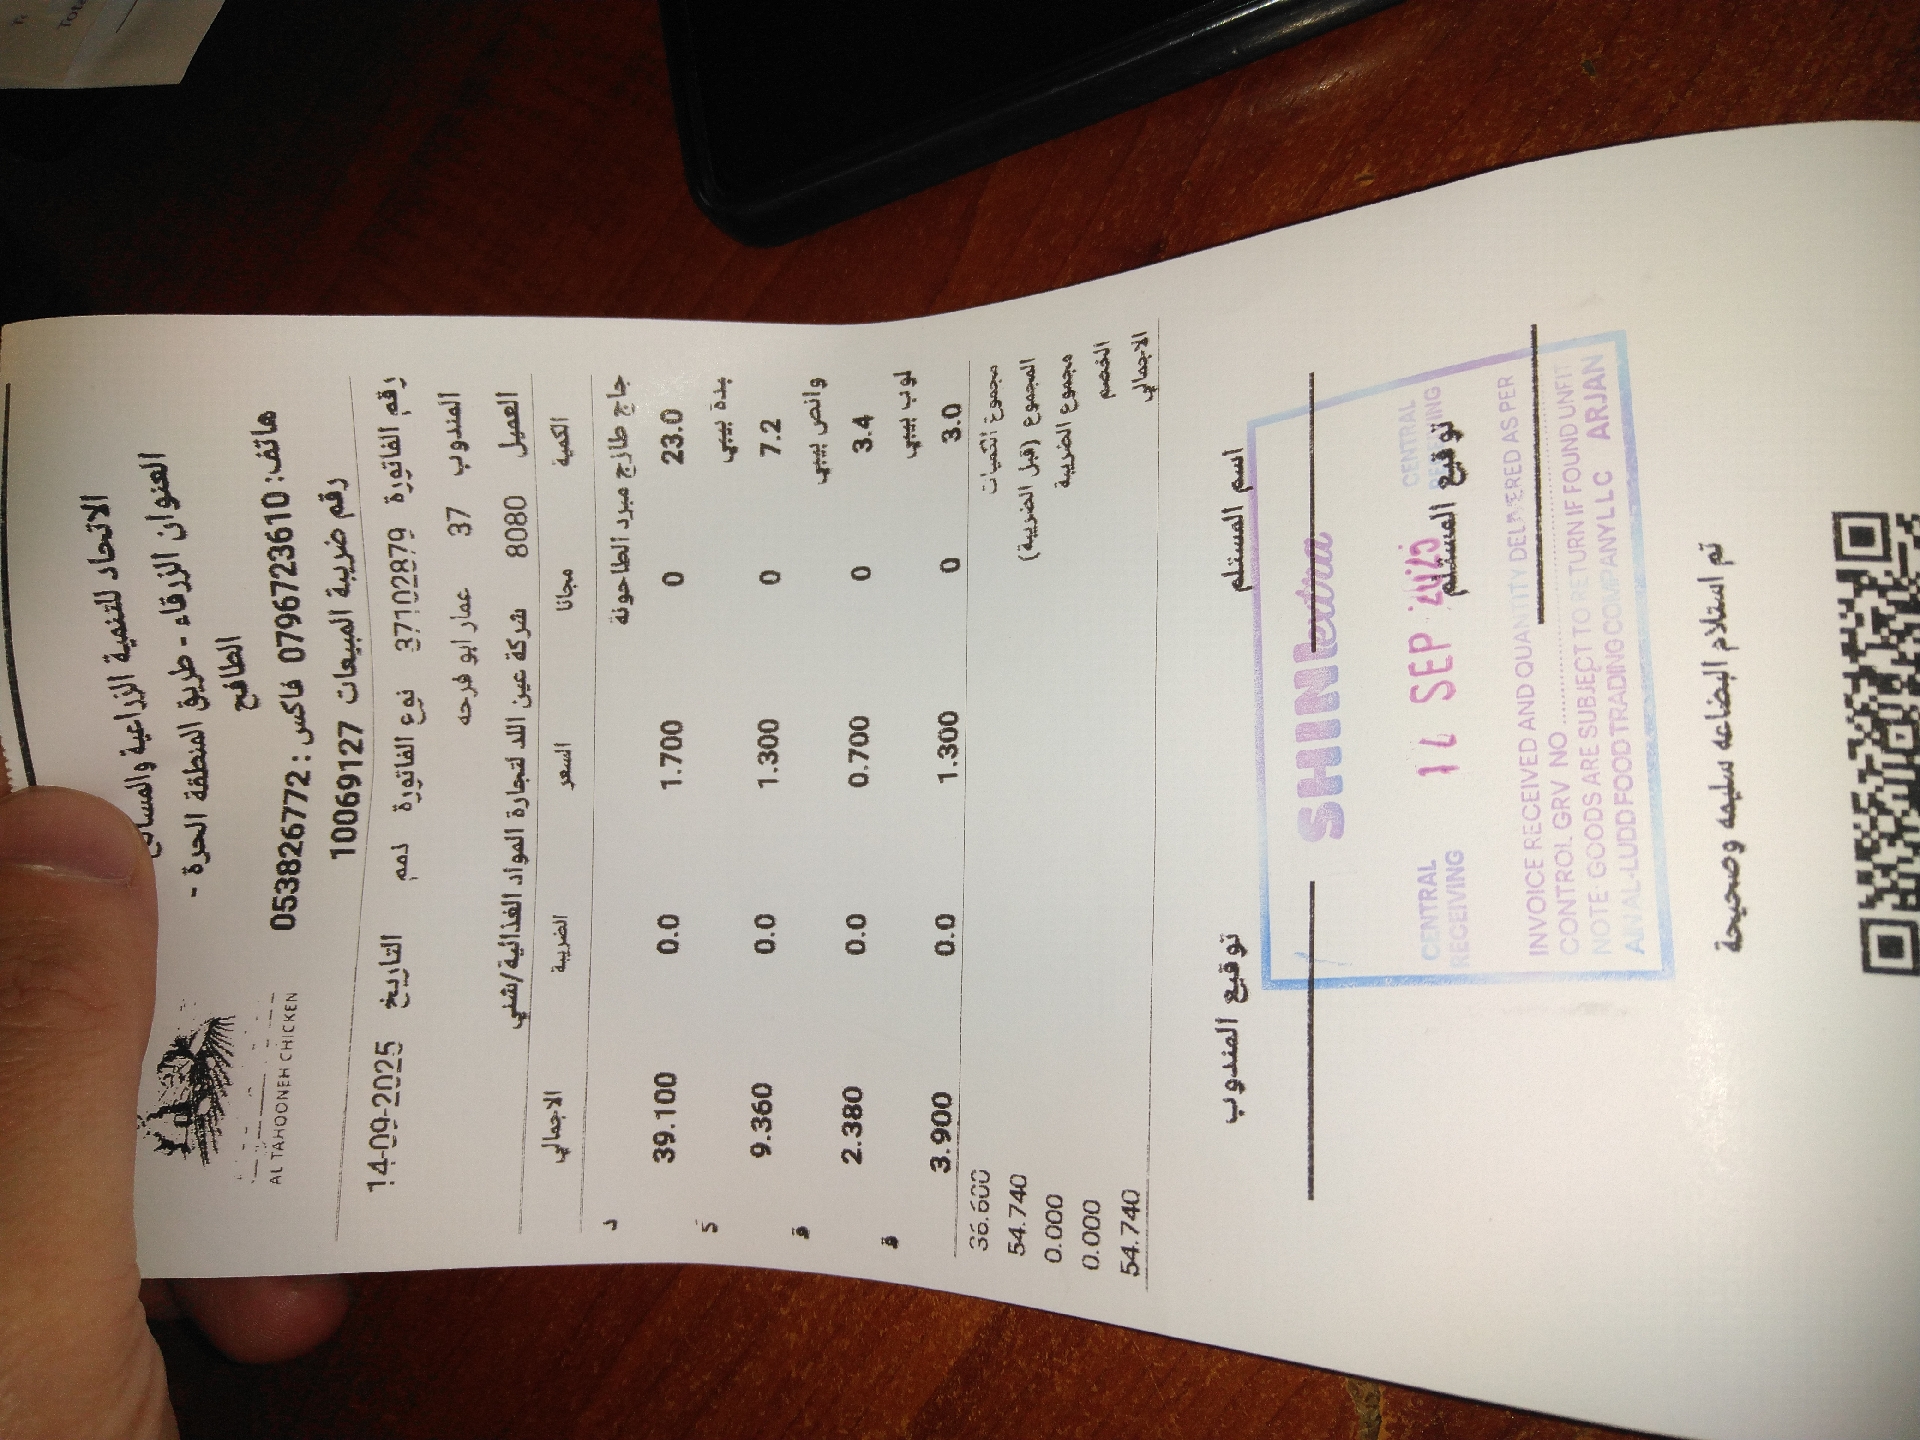 الاتحاد للتنمية الزراعية والمسالخ
العنوان الزرقاء - طريق المنطقة الحرة -
الطافح
هاتف: 0796723610 فاكس: 053826772
رقم ضريبة المبيعات 10069127
AL TAHOONEH CHICKEN
رقم الفاتورة 37102879 نوع الفاتورة ذمم التاريخ 14-09-2025
المندوب 37 عمار ابو فرحه
العميل 8080 شركة عين اللد لتجارة المواد الغذائية/شني
الكمية مجانا السعر الضريبة الاجمالي
جاج طازج مبرد الطاحونة د
23.0 0 1.700 0.0 39.100
بدة بيبي ك
7.2 0 1.300 0.0 9.360
وانص بيبي ق
3.4 0 0.700 0.0 2.380
لوب بيبي ق
3.0 0 1.300 0.0 3.900
مجموع الكميات 36.600
المجموع (قبل الضريبة) 54.740
مجموع الضريبة 0.000
الخصم 0.000
الاجمالي 54.740
اسم المستلم توقيع المندوب
SHINI extra
توقيع المستلم
CENTRAL RECEIVING
14 SEP 2025
CENTRAL
INVOICE RECEIVED AND QUANTITY DELIVERED AS PER
CONTROL GRV NO
NOTE: GOODS ARE SUBJECT TO RETURN IF FOUND UNFIT
AIN AL-LUDD FOOD TRADING COMPANY LLC ARJAN
تم استلام البضاعه سليمه وصحيحة